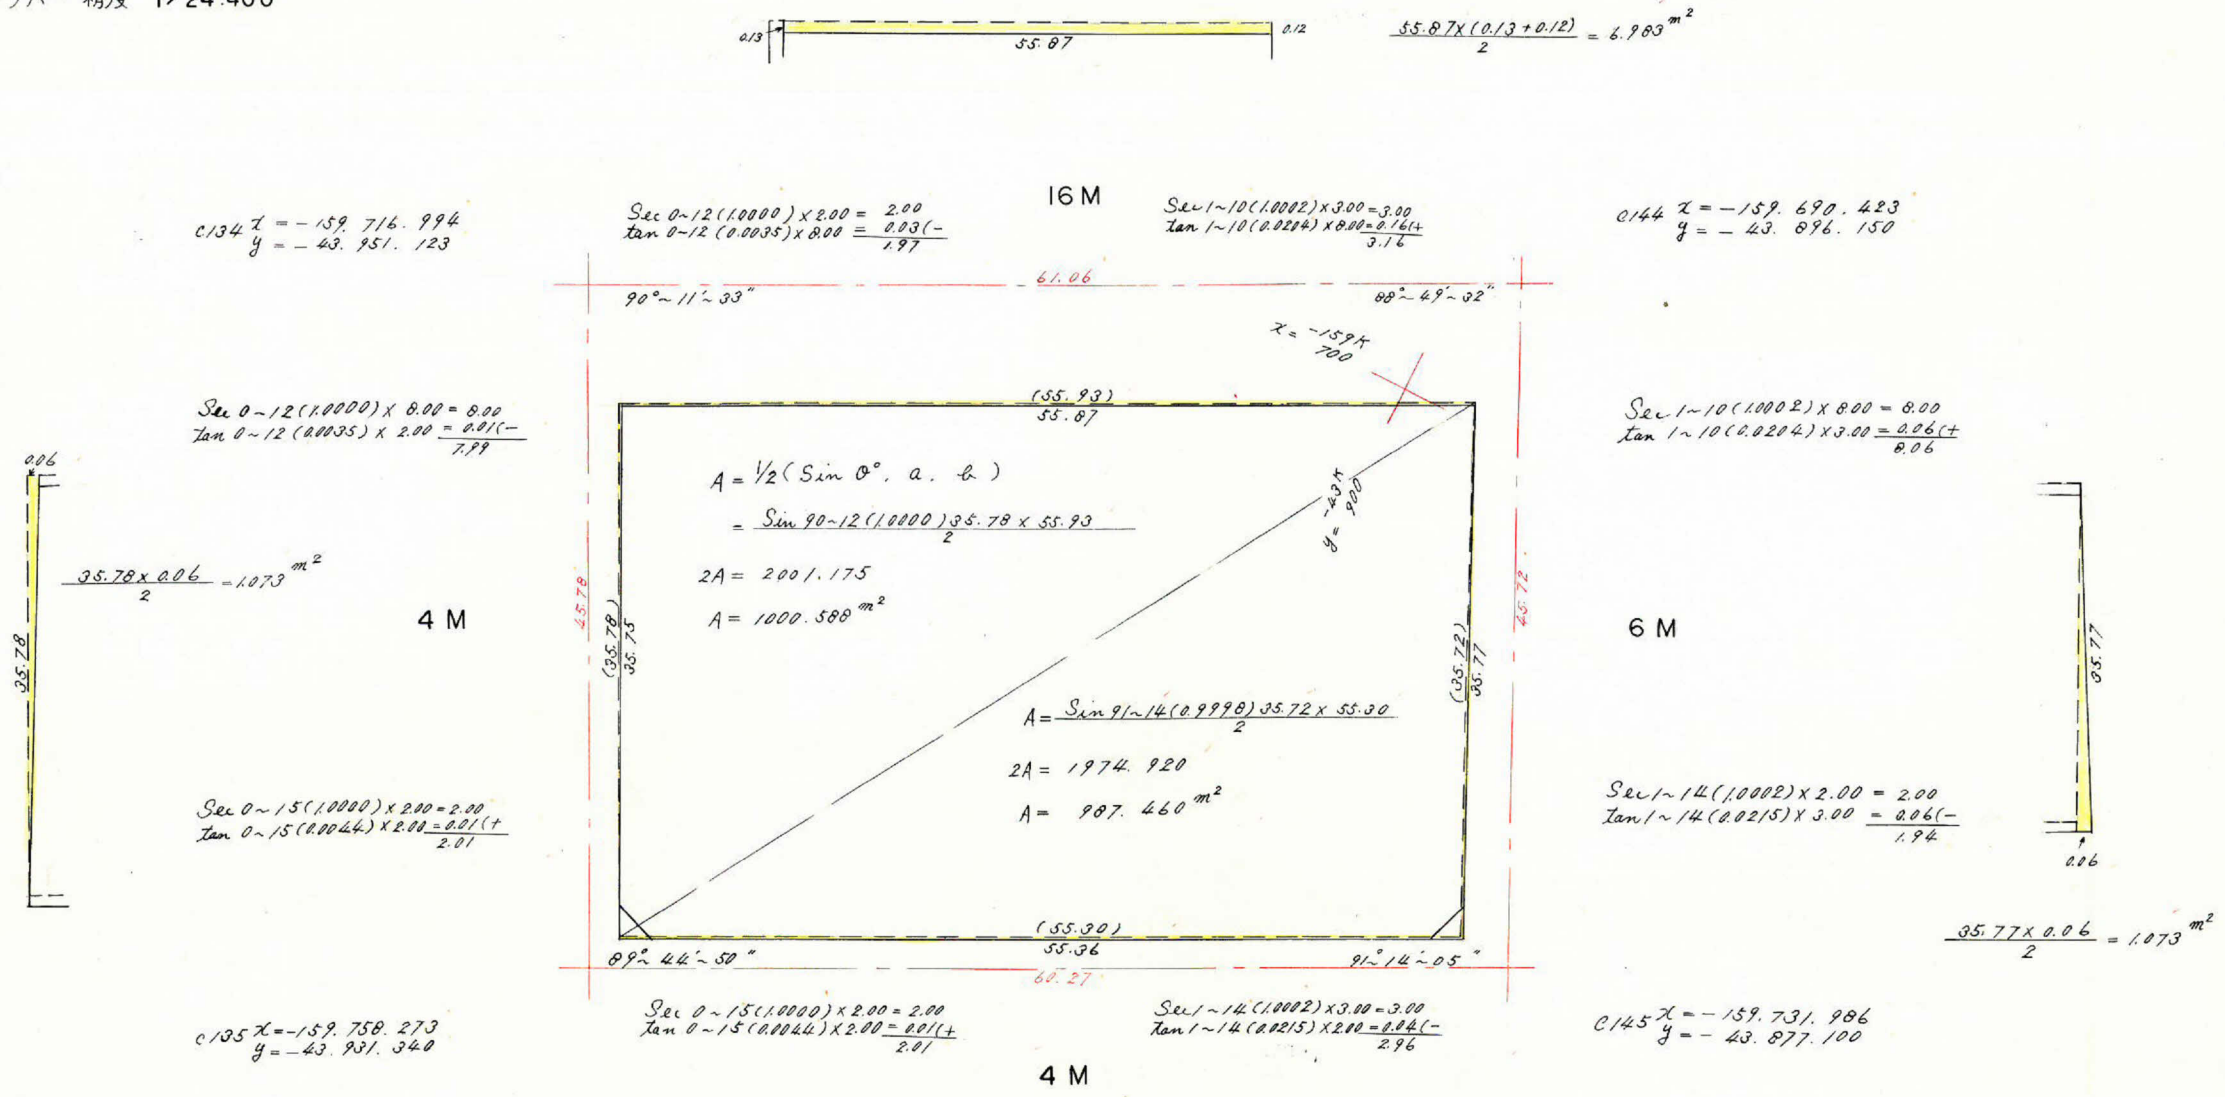 精度 1/24.400
0.13
55.87
0.12
55.87×(0.13+0.12)
2
= 6.983 m²
16 M
C134 x = -159. 716. 994
y = -43. 951. 123
Sec 0~12(1.0000)×2.00 = 2.00
tan 0~12(0.0035)×8.00 = 0.03(-
1.97
Sec 1~10(1.0002)×3.00=3.00
tan 1~10(0.0204)×8.00=0.16(+
3.16
C144 x = -159. 690. 423
y = - 43. 896. 150
61.06
90°~11'~33"
88°~49'~32"
x = -159K
700
Sec 0~12(1.0000)× 8.00 = 8.00
tan 0~12(0.0035)× 2.00 = 0.01(-
7.99
(55.93)
55.87
Sec 1~10(1.0002)× 8.00 = 8.00
tan 1~10(0.0204)×3.00 = 0.06(+
8.06
0.06
A = 1/2(Sin θ°. a. b)
= Sin 90~12(1.0000)35.78 × 55.93
2
2A = 2001.175
A = 1000.588 m²
y = -43K
900
35.78
35.78× 0.06
2
=1.073 m²
4 M
45.78
(35.78)
35.75
(35.72)
35.77
45.72
6 M
35.77
A = Sin 91~14(0.9998)35.72 × 55.30
2
2A = 1974. 920
A = 987. 460 m²
Sec 0~15(1.0000)×2.00=2.00
tan 0~15(0.0044)×2.00=0.01(+
2.01
Sec 1~14(1.0002)×2.00 = 2.00
tan 1~14(0.0215)×3.00 = 0.06(-
1.94
0.06
(55.30)
55.36
89°~44'~50"
91~14'~05"
60.27
35.77× 0.06
2
= 1.073 m²
C135 x=-159. 758. 273
y=-43. 931. 340
Sec 0~15(1.0000)×2.00=2.00
tan 0~15(0.0044)×2.00=0.01(+
2.01
Sec 1~14(1.0002)×3.00=3.00
tan 1~14(0.0215)×2.00=0.04(-
2.96
C145 x = -159. 731. 986
y = - 43. 877. 100
4 M